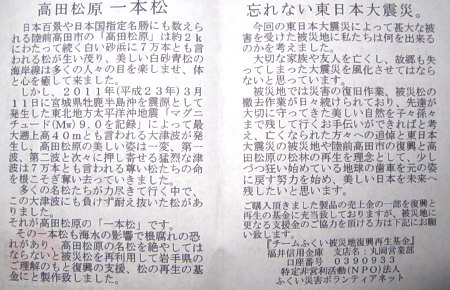 高田松原 一本松
日本百景や日本国指定名勝にも数えられる陸前高田市の「高田松原」は約2kにわたって続く白い砂浜に7万本とも言われる松が生い茂り、美しい白砂青松の海岸線は多くの人々の目を楽しませ、体と心を癒して来ました。
しかし、2011年(平成23年)3月11日に宮城県牡鹿半島沖を震源として発生した東北地方太平洋沖地震「マグニチュード(Mw)9.0を記録」によって最大遡上高40mとも言われる大津波が発生し、高田松原の美しい姿は一変、第一波、第二波と次々に押し寄せる猛烈な津波は7万本とも言われる尊い松たちの命を根こそぎ奪い去っていきました。
多くの名松たちが力尽きて行く中で、この大津波にも負けず耐え抜いた松がありました。
それが高田松原の「一本松」です。
その一本松も海水の影響で根腐れの恐れがあり、高田松原の名松を絶やしてはならないと被災松を再利用して岩手県のご理解のもと復興の支援、松の再生の基金にと製作致しました。
忘れない東日本大震災。
今回の東日本大震災によって甚大な被害を受けた被災地に私たちは何を出来るのかを考えました。
大切な家族や友人を亡くし、故郷も失ってしまった大震災を風化させてはならないと思っています。
被災地では災害の復旧作業、被災松の撤去作業が日々続けられており、先達が大切に守ってきた美しい自然を子々孫々まで残して行くお手伝いができればと考え、亡くなられた方々への追悼と東日本大震災の被災地や陸前高田市の復興と高田松原の松林の再生を理念として、少しづつ狂い始めている地球の歯車を元の姿に戻す努力を始め、美しい日本を未来へ残したいと思います。
ご購入頂きました製品の売上金の一部を復興と再生の基金に充当致しておりますが、被災地に更なる支援金のご協力を頂ける方は下記にお願い致します。
『チームふくい被災地復興再生基金』
福井信用金庫 丸岡営業部
口座番号 0390933
特定非営利活動(NPO)法人
ふくい災害ボランティアネット